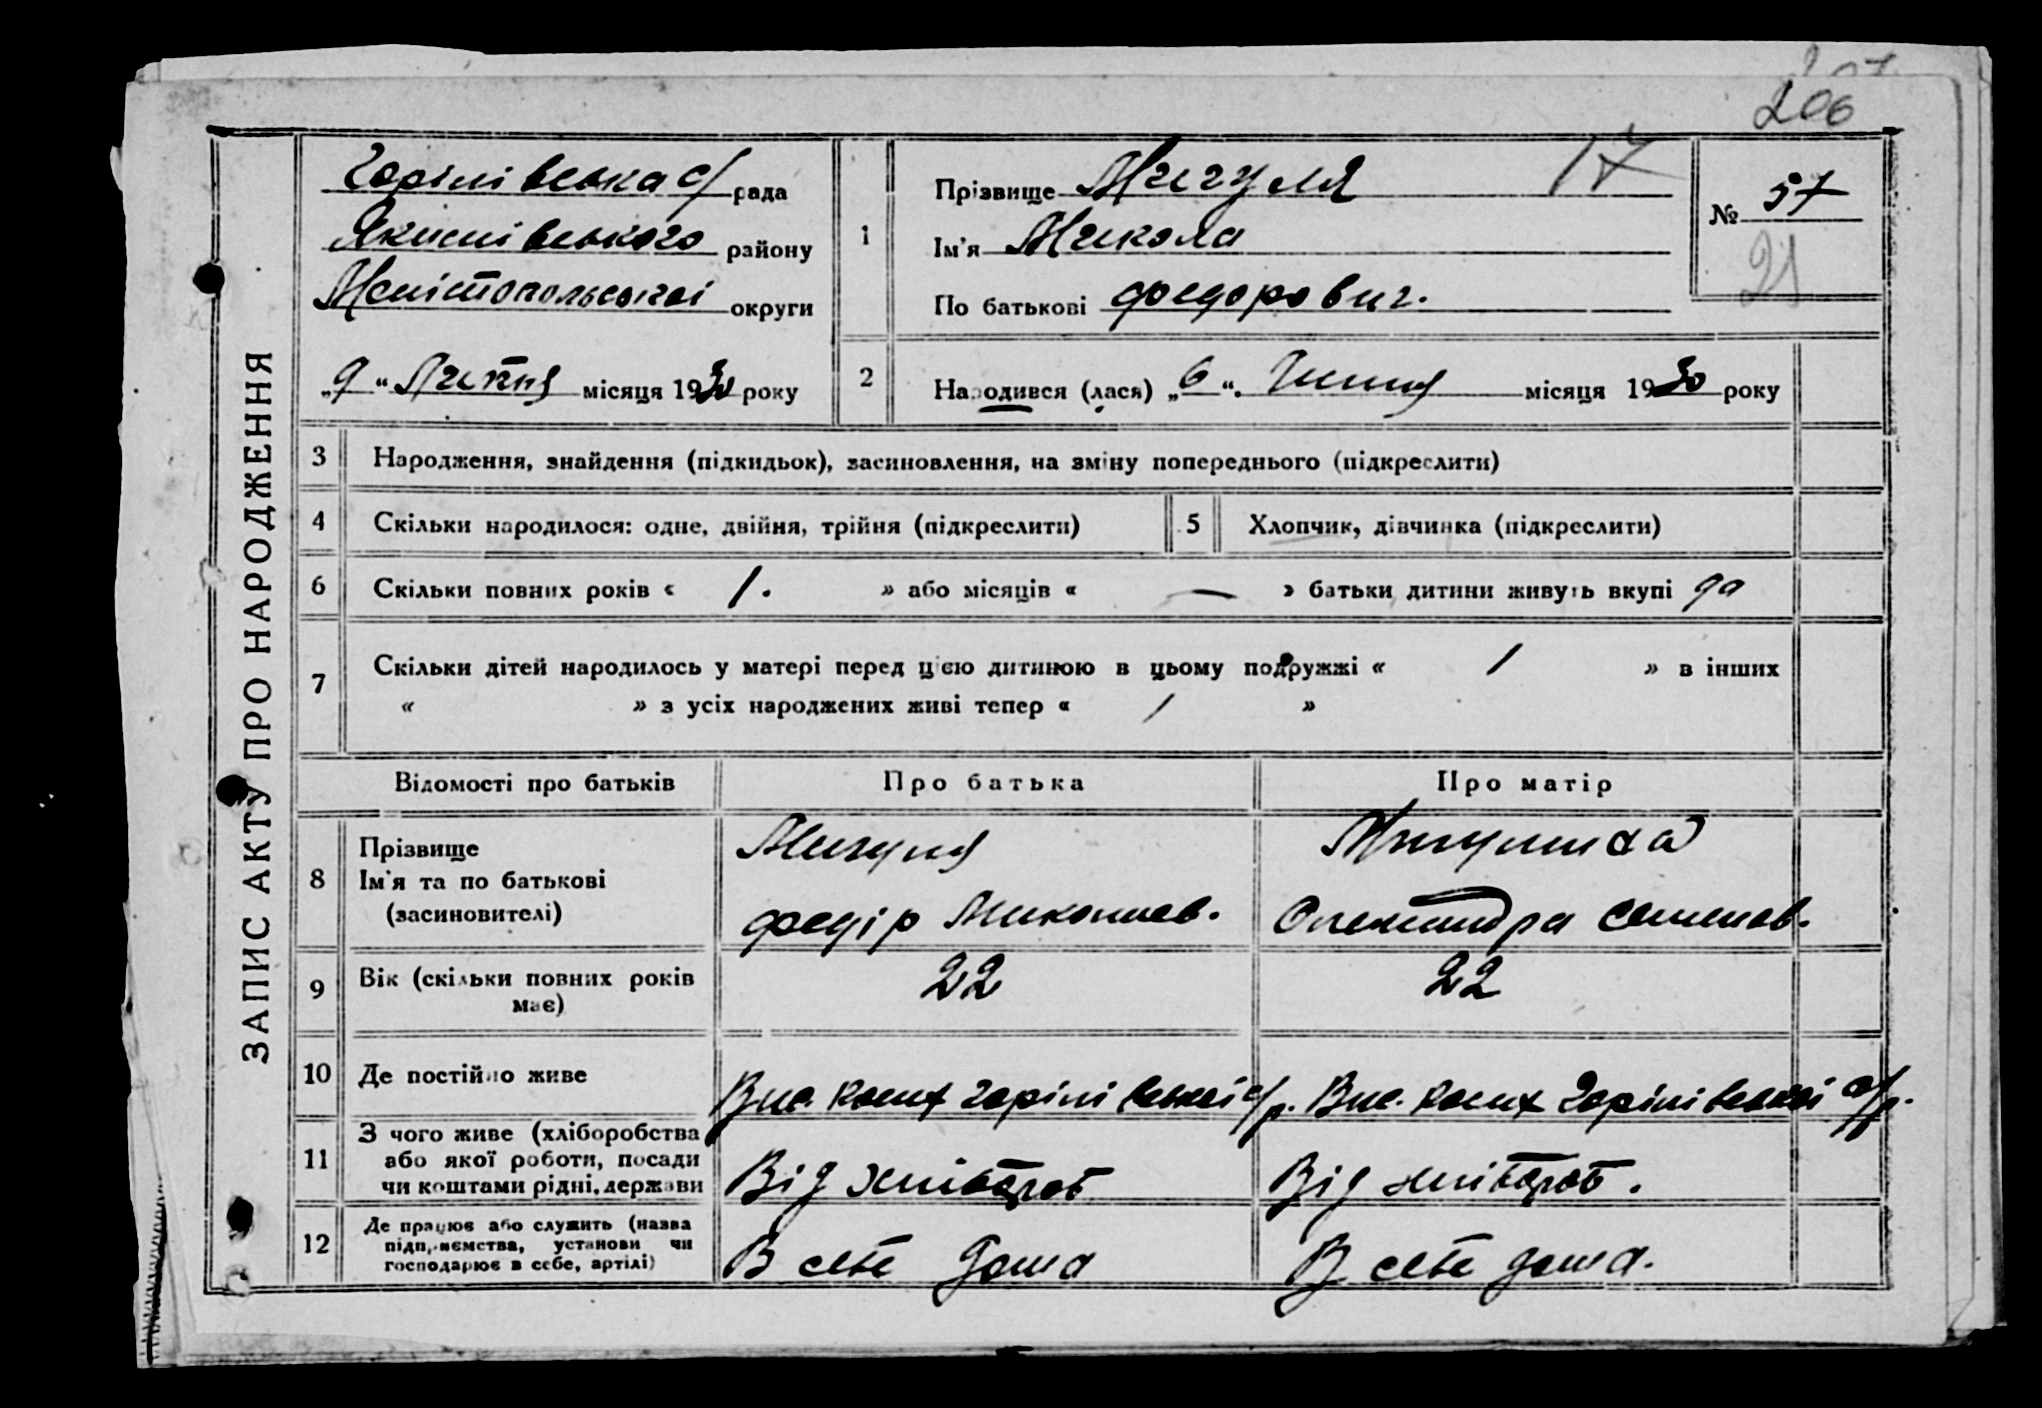 206
ЗАПИС АКТУ ПРО НАРОДЖЕННЯ
Горілівська с/рада
Якимівського району
Мелітопольської округи
„9“ Липня місяця 1930 року
1
Прізвище Мигуля
17
Ім'я Микола
По батькові Федорович.
№ 57
21
2 Народився (лася) „6“ місяця 1930 року
3 Народження, знайдення (підкидьок), засиновлення, на зміну попереднього (підкреслити)
4 Скільки народилося: одне, двійня, трійня (підкреслити)
5 Хлопчик, дівчинка (підкреслити)
6 Скільки повних років « 1. » або місяців « — » батьки дитини живуть вкупі да
7 Скільки дітей народилось у матері перед цією дитиною в цьому подружжі « 1 » в інших
« » з усіх народжених живі тепер « 1 »
Відомості про батьків Про батька Про матір
8 Прізвище
Ім'я та по батькові
(засиновителі)
Мигуля
Федір Миколаев.
Олександра Семенов.
9 Вік (скільки повних років
має)
22
22
10 Де постійно живе
Вис. Косих Горілівської с/р.
Вис. Косих Горілівської с/р.
11 З чого живе (хліборобства
або якої роботи, посади
чи коштами рідні, держави
Від хлібороб
Від хлібороб.
12 Де працює або служить (назва
підприємства, установи чи
господарює в себе, артілі)
В себе дома
В себе дома.